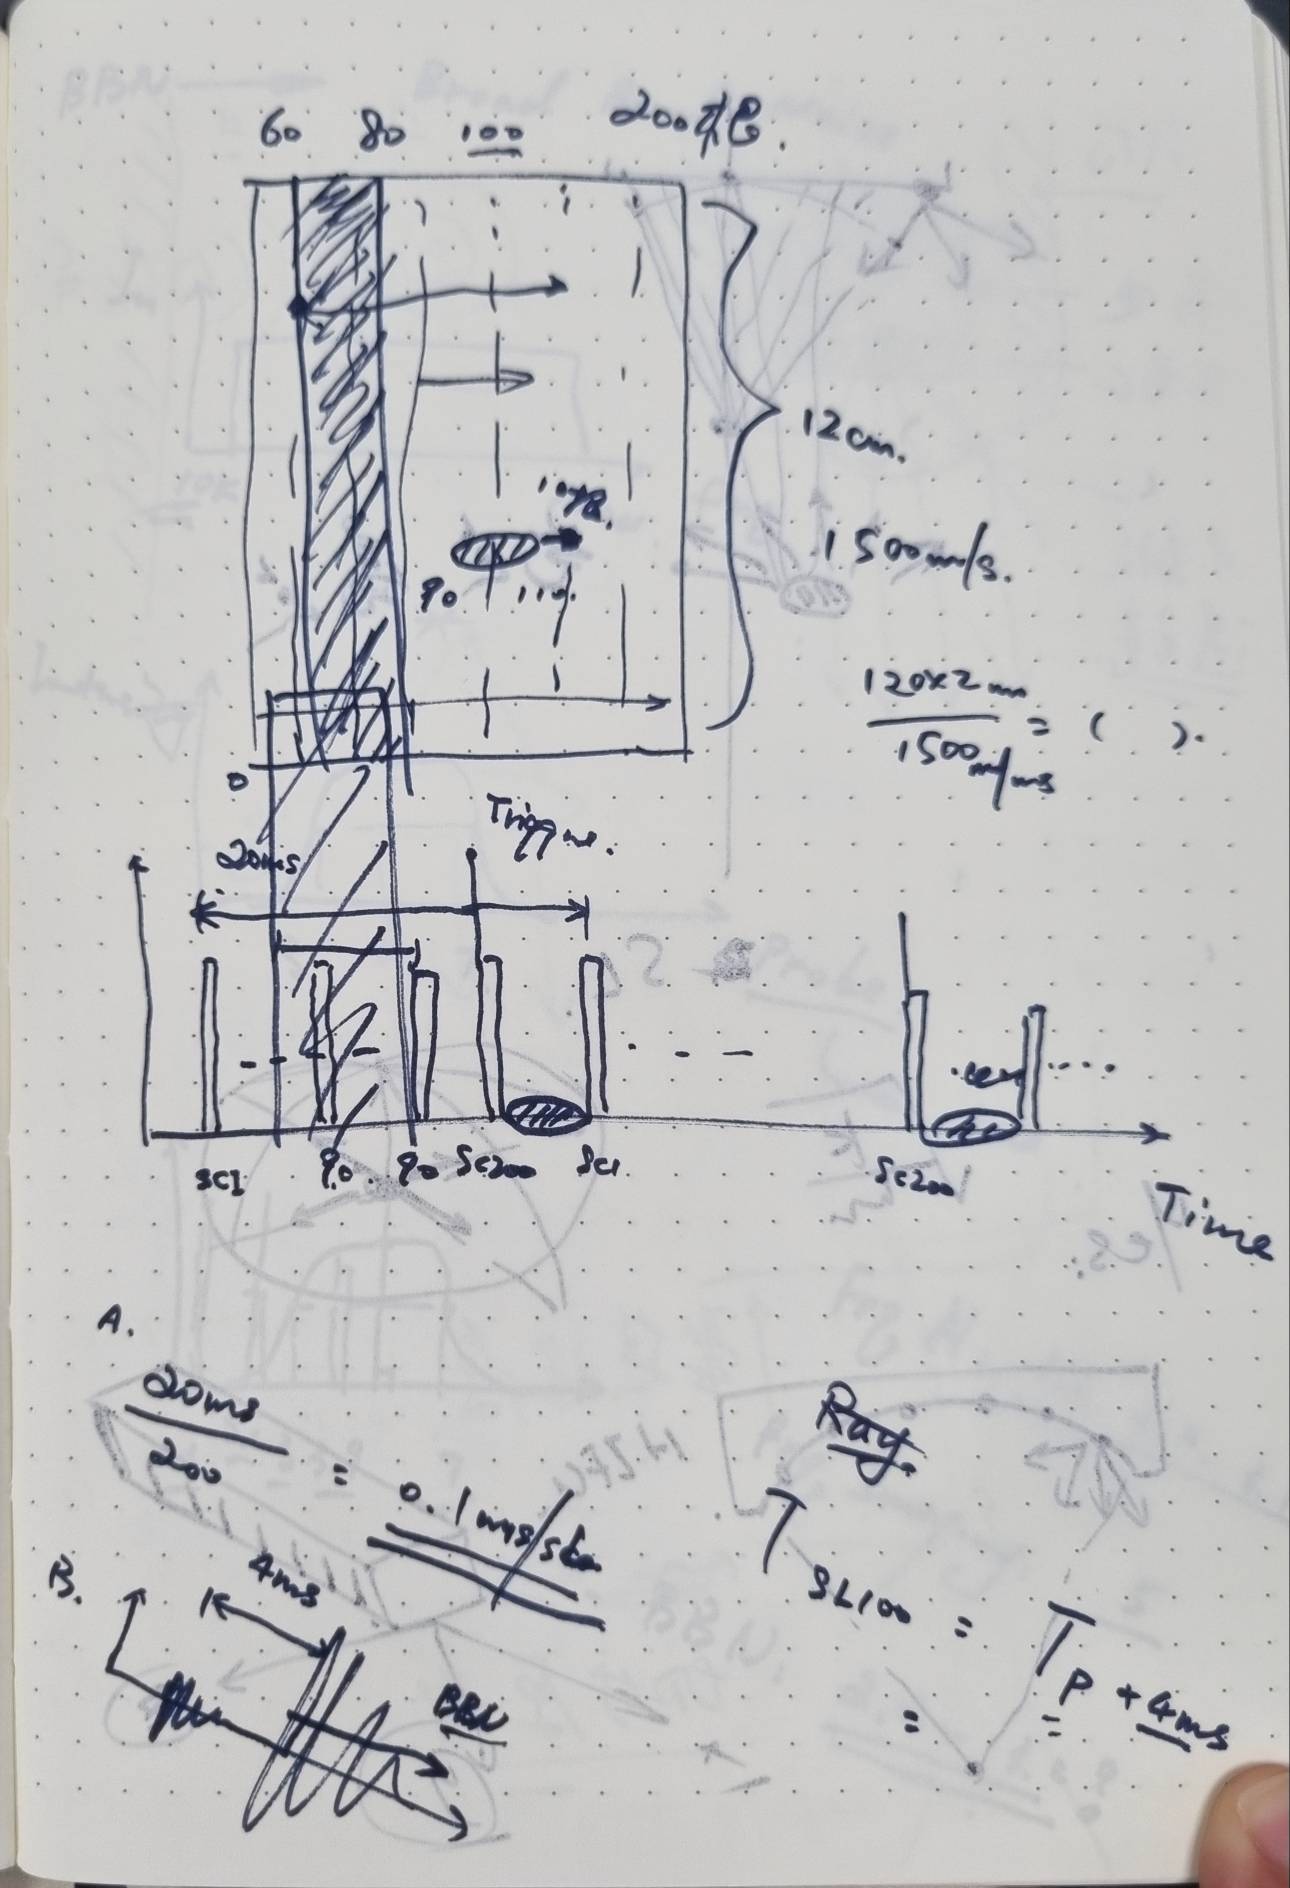 60 80 100 200本
12cm.
1500m/s.
90 110.
120×2mm
1500m/ms
= ( ).
0
20ms
Trigger.
SC1 90. 90 Sc200 Sc1 Sc200
Time
A.
20ms
200
= 0.1ms/
B.
4ms
BBN
Ray.
T SL100 = T P + 4ms
=